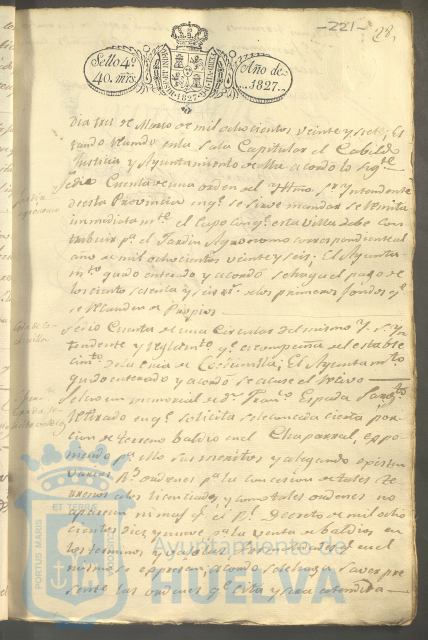 -221-
28,
Sello 4º
40. mrs.
HISPANIARUM
1827
Año de
1827.
Dia tres de Marzo de mil ochocientos veinte y siete; Es
tando reunido en la Sala Capitular el Cabildo
Justicia y Ayuntamiento de Villa acordo lo sigte
Se dio Cuenta de una orden del Yltmo. Sr. Yntendente
de esta Provincia en qe. se sirve mandar se remita
inmediatamte. el cupo con qe. esta villa debe con
tribuir pa. el Jardin Agronomo correspondiente al
año de mil ochocientos veinte y seis; El Ayunta
mto. quedo enterado y acordó se haga el pago de
los ciento setenta y seis rs. de los primeros fondos qe.
se recauden de Propios.
Se dio Cuenta de una Circular del mismo Sr. Yn
tendente y reglamto. qe. acompaña del estable
cimto. de la cria de Cochinilla; El Ayuntamto.
quedo enterado y acordó se acuse el recivo
memorial de Dn. Franco. Espada Sargto.
retirado en qe. solicita se le conceda cierta por
cion de terreno baldio en el Chaparral, expo
niendo pa. ello sus meritos y alegando existen
varias Rs. ordenes pa. la concesion de tales te
rrenos a los licenciados, y como tales ordenes no
aparecen ni mas qe. el Rl. Decreto de mil ocho
cientos diez y nueve pa. la venta de baldios en
los terminos y qe. en el
mismo se expresa; acordó se le haga saver pre
sente las ordenes qe. cita y sera atendida
PORTUS MARIS
ET TERRAE
Ayuntamiento de
HUELVA